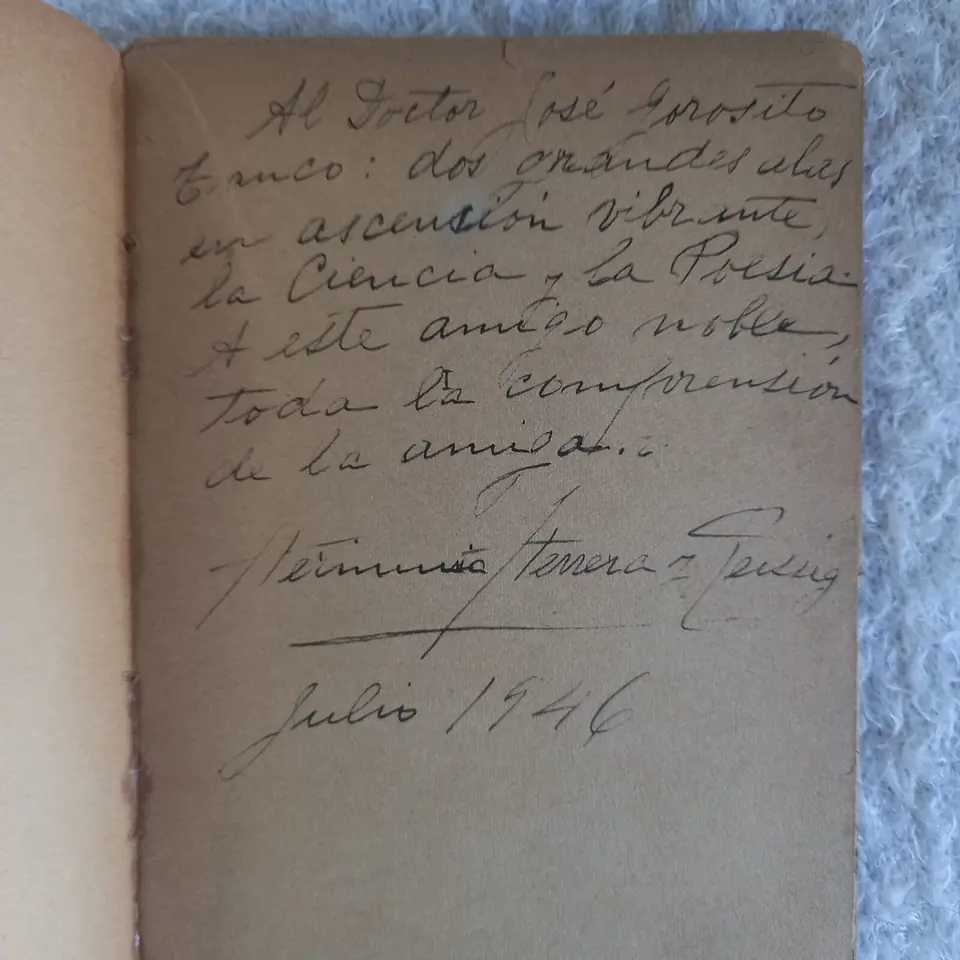 Al Doctor José Gorosito
Tanco: dos grandes alas
en ascensión vibrante,
la Ciencia y la Poesia.
A este amigo noble,
toda la comprensión
de la amiga...
Herminia Herrera y Reissig
Julio 1946